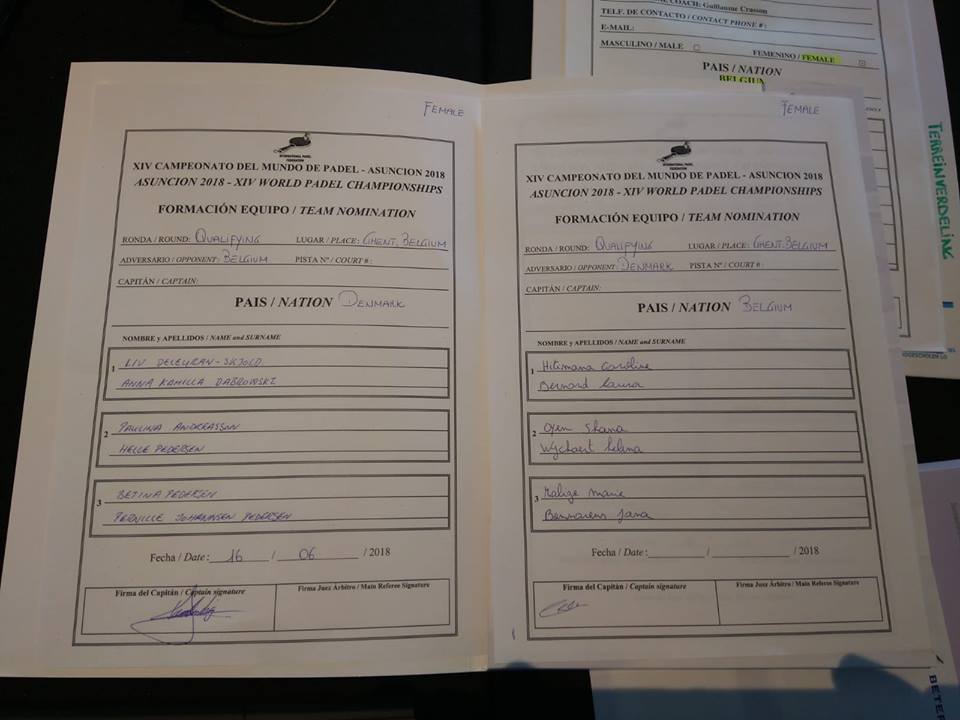 COACH: Guillaume Crasson
TELF. DE CONTACTO / CONTACT PHONE #:
E-MAIL:
MASCULINO / MALE
FEMENINO / FEMALE
PAIS / NATION
BELGIUM
TERREINVERDELING
FEMALE
INTERNATIONAL PADEL
FEDERATION
XIV CAMPEONATO DEL MUNDO DE PADEL - ASUNCION 2018
ASUNCION 2018 - XIV WORLD PADEL CHAMPIONSHIPS
FORMACIÓN EQUIPO / TEAM NOMINATION
RONDA / ROUND: QUALIFYING LUGAR / PLACE: GHENT, BELGIUM
ADVERSARIO / OPPONENT: BELGIUM PISTA Nº / COURT #:
CAPITÁN / CAPTAIN:
PAIS / NATION DENMARK
NOMBRE y APELLIDOS / NAME and SURNAME
1 LIV DELEURAN-SKJOLD
ANNA KAMILLA DABROWSKI
2 PAULINA ANDREASSON
HELLE PEDERSEN
3 BETINA PEDERSEN
PERNILLE JOHANNSEN PEDERSEN
Fecha / Date: 16 / 06 / 2018
Firma del Capitán / Captain signature Firma Juez Árbitro / Main Referee Signature
FEMALE
INTERNATIONAL PADEL
FEDERATION
XIV CAMPEONATO DEL MUNDO DE PADEL - ASUNCION 2018
ASUNCION 2018 - XIV WORLD PADEL CHAMPIONSHIPS
FORMACIÓN EQUIPO / TEAM NOMINATION
RONDA / ROUND: QUALIFYING LUGAR / PLACE: GHENT, BELGIUM
ADVERSARIO / OPPONENT: DENMARK PISTA Nº / COURT #:
CAPITÁN / CAPTAIN:
PAIS / NATION BELGIUM
NOMBRE y APELLIDOS / NAME and SURNAME
1 Hitimana Caroline
Bernard Laura
2 Oyen Shana
Wyckaert Helena
3 Malige Marie
Jana
Fecha / Date: / / 2018
Firma del Capitán / Captain signature Firma Juez Árbitro / Main Referee Signature